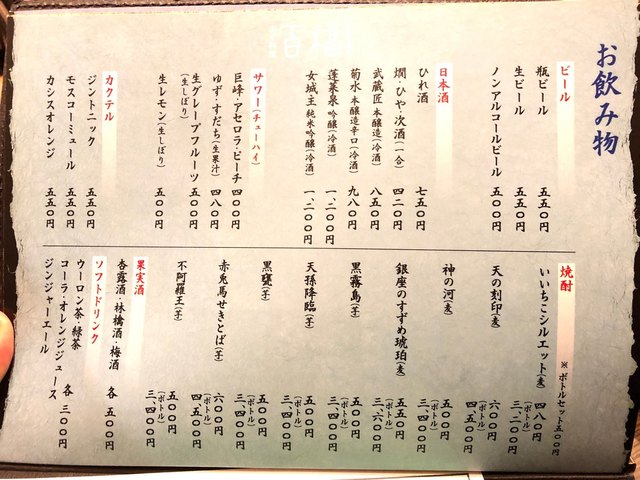 お飲み物
ビール
瓶ビール 五五〇円
生ビール 五五〇円
ノンアルコールビール 五〇〇円
日本酒
ひれ酒 七五〇円
燗・ひや・次酒(一合) 四二〇円
武蔵匠 本醸造(冷酒) 八五〇円
菊水 本醸造辛口(冷酒) 九八〇円
蓬莱泉 吟醸(冷酒) 一、二〇〇円
女城主 純米吟醸(冷酒) 一、二〇〇円
サワー(チューハイ)
巨峰・アセロラ・ピーチ 四〇〇円
ゆず・すだち(生果汁) 四八〇円
生グレープフルーツ 五〇〇円
(生しぼり)
生レモン(生しぼり) 五〇〇円
カクテル
ジントニック 五五〇円
モスコーミュール 五五〇円
カシスオレンジ 五五〇円
焼酎 ※ボトルセット五〇〇円
いいちこシルエット(麦) 四八〇円
(ボトル) 三、二〇〇円
天の刻印(麦) 六〇〇円
(ボトル) 四、五〇〇円
神の河(麦) 五〇〇円
(ボトル) 三、四〇〇円
銀座のすずめ琥珀(麦) 五五〇円
(ボトル) 三、六〇〇円
黒霧島(芋) 五〇〇円
(ボトル) 三、四〇〇円
天孫降臨(芋) 五〇〇円
(ボトル) 三、四〇〇円
黒甕(芋) 五〇〇円
(ボトル) 三、四〇〇円
赤兎馬せきとば(芋) 六〇〇円
(ボトル) 四、五〇〇円
不阿羅王(芋) 五〇〇円
(ボトル) 三、四〇〇円
果実酒
杏露酒・林檎酒・梅酒 各 五〇〇円
ソフトドリンク
ウーロン茶・緑茶
コーラ・オレンジジュース 各 三〇〇円
ジンジャーエール